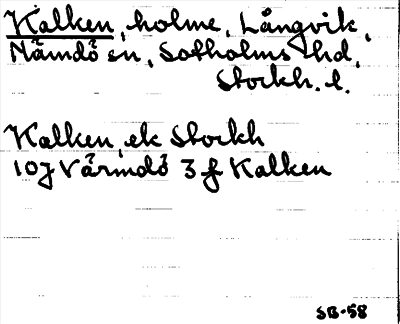 Kalken, holme, Långvik,
Nämdö sn, Sotholms hd,
Stockh. l.
Kalken, ek Stockh
10J Värmdö 3 f Kalken
SB-58